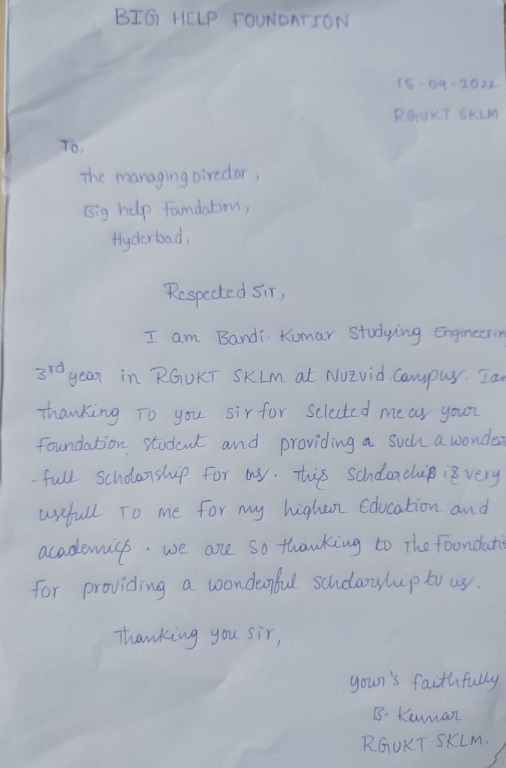 BIG HELP FOUNDATION
15-09-2022
RGUKT SKLM
To,
The managing Director,
Big help foundation,
Hyderbad,
Respected Sir,
I am Bandi. Kumar Studying Engineerin
3rd year in RGUKT SKLM at Nuzvid Campus. I am
Thanking To you sir for Selected me as your
Foundation Student and providing a such a wonder
-full Scholarship for us. This Scholarchip is very
usefull To me for my higher Education and
academics. we are so thanking to The foundati
for providing a wonderful scholarship to us.
Thanking you sir,
your's faithfully
B. Kumar
RGUKT SKLM.